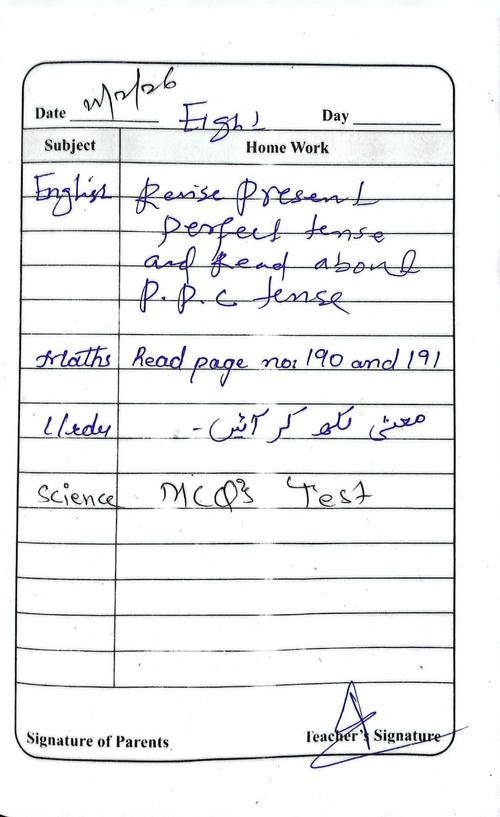 Date 11/2/26 Day
Eight
Subject Home Work
English Revise Present
Perfect tense
and Read about
P.P.C tense
Maths Read page no: 190 and 191
Urdu معنی لکھ کر آئیں۔
Science MCQ's Test
Signature of Parents Teacher's Signature